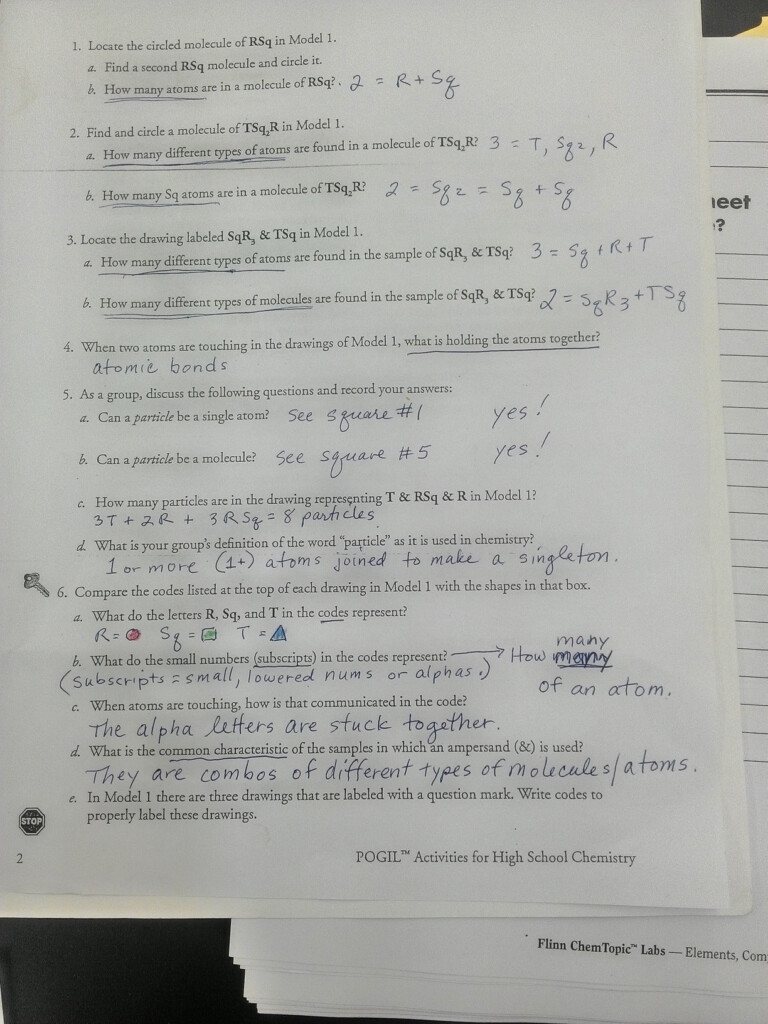 1. Locate the circled molecule of RSq in Model 1.
a. Find a second RSq molecule and circle it.
b. How many atoms are in a molecule of RSq? . 2 = R + Sq
2. Find and circle a molecule of TSq₂R in Model 1.
a. How many different types of atoms are found in a molecule of TSq₂R? 3 = T, Sq₂, R
b. How many Sq atoms are in a molecule of TSq₂R? 2 = Sq₂ = Sq + Sq
3. Locate the drawing labeled SqR₃ & TSq in Model 1.
a. How many different types of atoms are found in the sample of SqR₃ & TSq? 3 = Sq + R + T
b. How many different types of molecules are found in the sample of SqR₃ & TSq? 2 = SqR₃ + TSq
4. When two atoms are touching in the drawings of Model 1, what is holding the atoms together?
atomic bonds
5. As a group, discuss the following questions and record your answers:
a. Can a particle be a single atom? See square #1 yes!
b. Can a particle be a molecule? See square #5 yes!
c. How many particles are in the drawing representing T & RSq & R in Model 1?
3T + 2R + 3RSq = 8 particles
d. What is your group's definition of the word "particle" as it is used in chemistry?
1 or more (1+) atoms joined to make a singleton.
6. Compare the codes listed at the top of each drawing in Model 1 with the shapes in that box.
a. What do the letters R, Sq, and T in the codes represent?
R= Sq = T =
many
b. What do the small numbers (subscripts) in the codes represent? → How many
(Subscripts = small, lowered nums or alphas.) of an atom.
c. When atoms are touching, how is that communicated in the code?
The alpha letters are stuck together.
d. What is the common characteristic of the samples in which an ampersand (&) is used?
They are combos of different types of molecules/atoms.
e. In Model 1 there are three drawings that are labeled with a question mark. Write codes to
properly label these drawings.
STOP
2
POGIL™ Activities for High School Chemistry
eet
?
Flinn ChemTopic™ Labs — Elements, Com